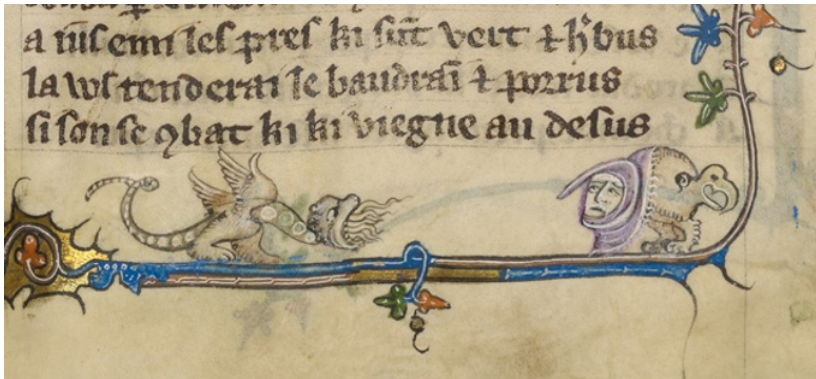 a m̄s emi les pres ki sūt vert ⁊ h̓bus
la vꝯ tenderai le baudrai ⁊ porrus
si son se ꝯbat ki ki viegne au desus